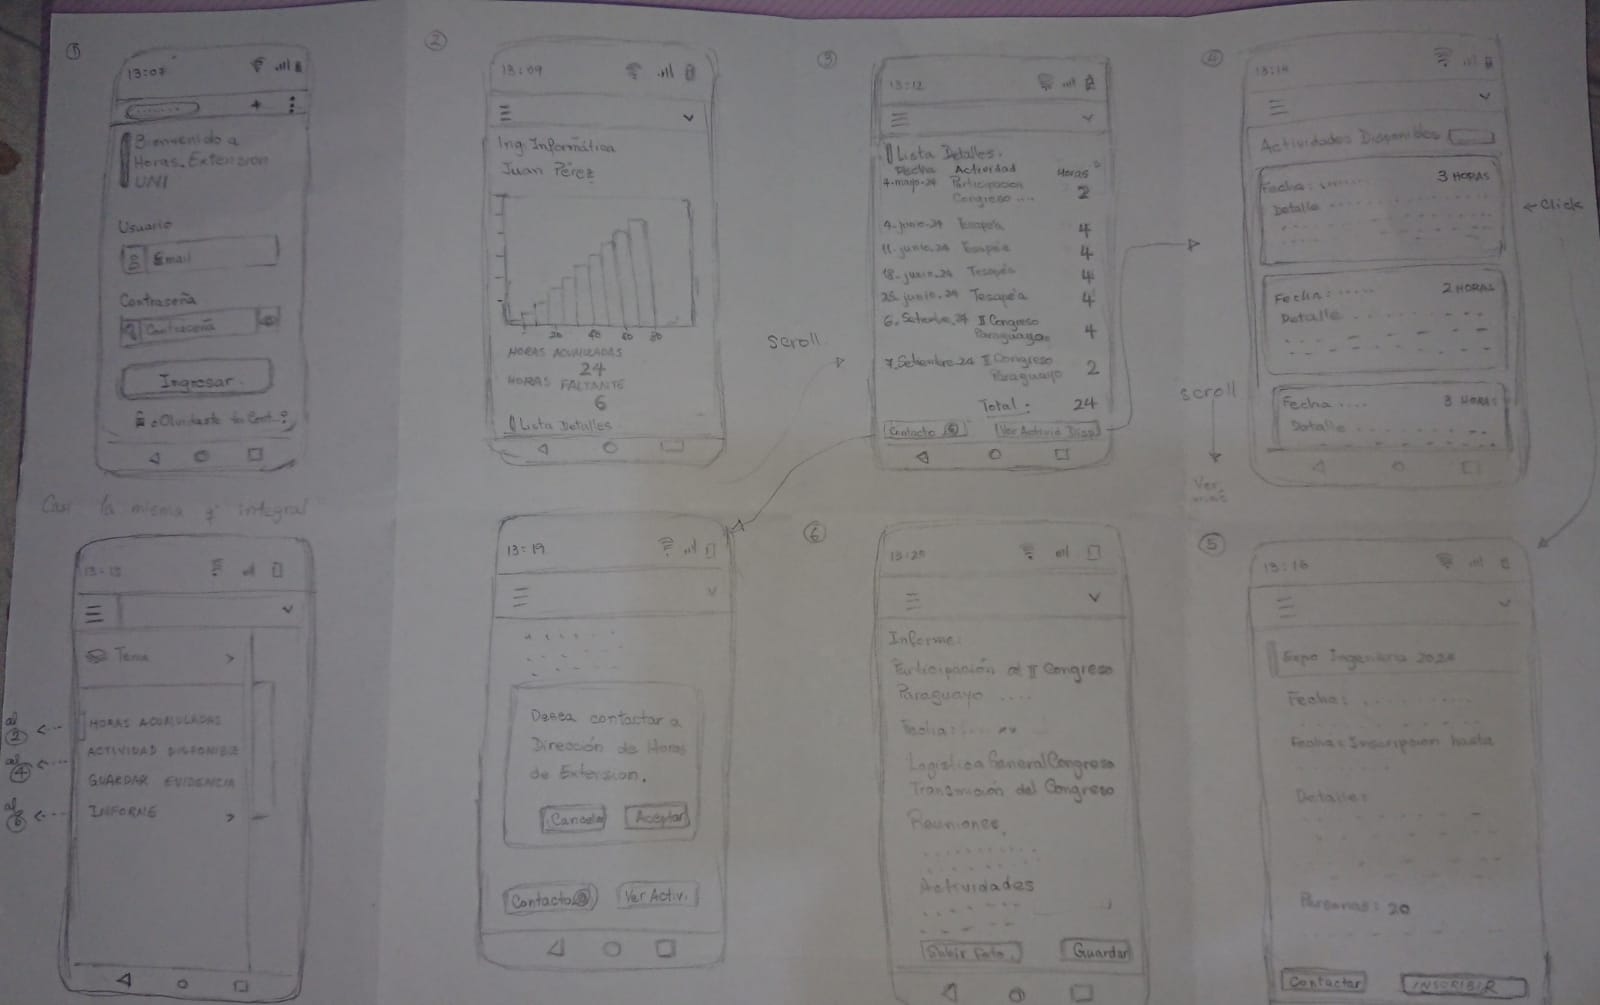 1
13:07
Bienvenido a
Horas. Extensión
UNI
Usuario
Email
Contraseña
Contraseña
Ingresar
¿Olvidaste tu Cont..?
Casi la misma q' integral
2
13:09
Ing. Informática
Juan Pérez
20 40 60 80
HORAS ACUMULADAS
24
HORAS FALTANTE
6
Lista Detalles
scroll
3
13:12
Lista Detalles.
Fecha Actividad Horas
4-mayo-24 Participacion
Congreso .... 2
4-junio-24 Tesapé'a 4
11-junio-24 Tesapé'a 4
18-junio-24 Tesapé'a 4
25-junio-24 Tesapé'a 4
6. Setiembre. 24 II Congreso
Paraguayo 4
7. Setiembre-24 II Congreso
Paraguayo 2
Total: 24
Contacto @ Ver Activid Disp
4
13:14
Actividades Disponibles
Fecha: ...... 3 HORAS
Detalle
Fecha: ..... 2 HORAS
Detalle
Fecha .... 3 HORAS
Detalle
←Click
scroll
Ver
13:13
Tema >
HORAS ACUMULADAS
ACTIVIDAD DISPONIBLE
GUARDAR EVIDENCIA
INFORME >
al
2
al
4
al
6
13:19
Desea contactar a
Dirección de Horas
de Extension.
Cancelar Aceptar
Contacto @ Ver Activ.
6
13:20
Informe:
Participación al II Congreso
Paraguayo ....
Fecha: ....
Logística General Congreso
Transmición del Congreso
Reuniones.
Actividades
Subir Foto. Guardar
5
13:16
Expo Ingenieria 2024
Fecha:
Fecha: Inscripcion hasta
Detalle:
Personas: 20
Contactar INSCRIBIR